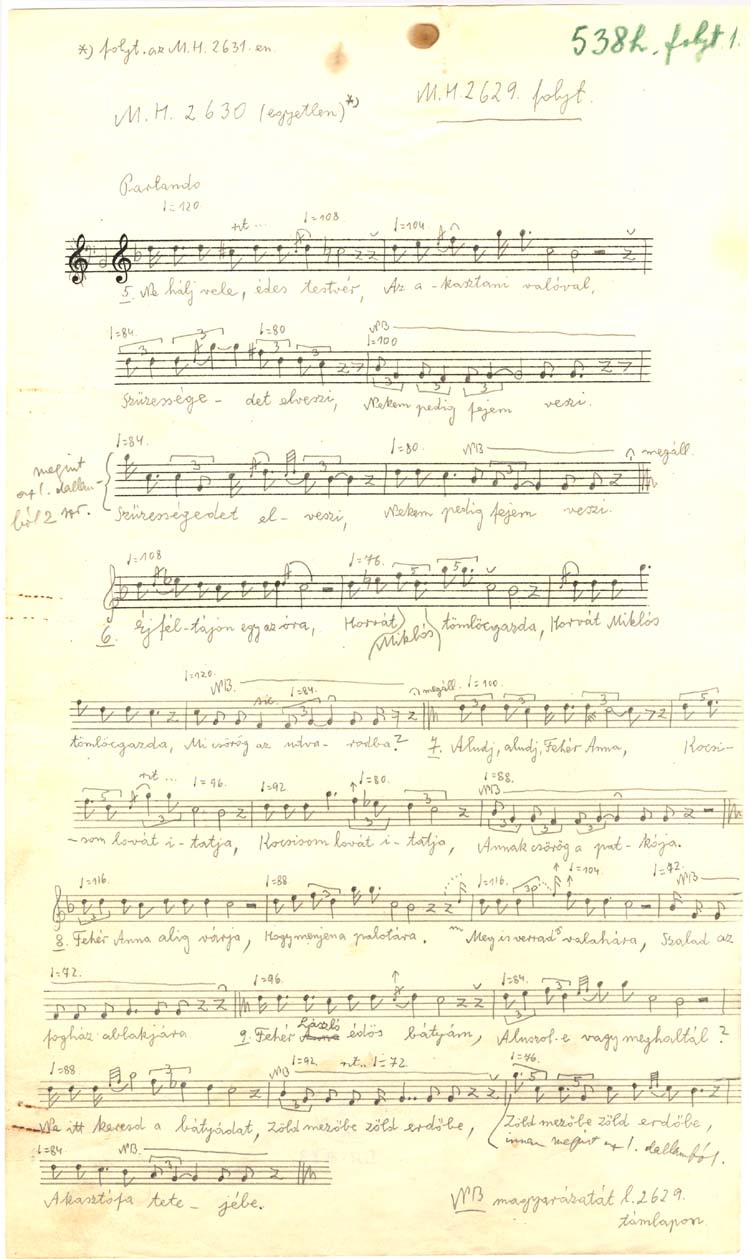 *) folyt. az M.H. 2631. en.
538h. folyt 1.
M.H. 2630 (egyetlen)*)
M.H. 2629. folyt.
Parlando
♩=120 rit... ♩=108 ♩=104
5. Ne hálj vele, édes testvér, Az a-kasztani valóval,
♩=84. ♩=80 NB ♩=100
Szüzessége- det elveszi, Nekem pedig fejem veszi.
♩=84. ♩=80 NB megáll.
megint
az 1. dallam-
ból 2 sor.
Szüzességedet el- veszi, Nekem pedig fejem veszi.
♩=108 ♩=76.
6. Éjfél-tájon egy az óra, Horvát (Miklós) tömlöcgazda, Horvát Miklós
♩=120. NB. sic. ♩=84. megáll. ♩=100.
tömlöcgazda, Mi csörög az udva- rodba? 7. Aludj, aludj, Fehér Anna, Kocsi-
rit... ♩=96. ♩=92 ♩=80. ♩=88. NB
-som lovát i-tatja, Kocsisom lovát i-tatja, Annak csörög a pat-kója.
♩=116. ♩=88 ♩=116. ♩=104 ♩=72. NB
8. Fehér Anna alig várja, Hogy menjen a palotára. Meg is verrad valahára, Szalad az
♩=72. ♩=96. ♩=84.
fogház ablakjára 9. Fehér Anna László édös bátyám, Aluszol-e vagy meghaltál?
♩=88 NB ♩=92 rit.. ♩=72. ♩=76.
Ne itt keresd a bátyádat, Zöld mezőbe zöld erdőbe, Zöld mezőbe zöld erdőbe,
innen megint az 1. dallamból.
♩=84 NB.
Akasztófa tete- jébe.
NB magyarázatát l. 2629.
támlapon.